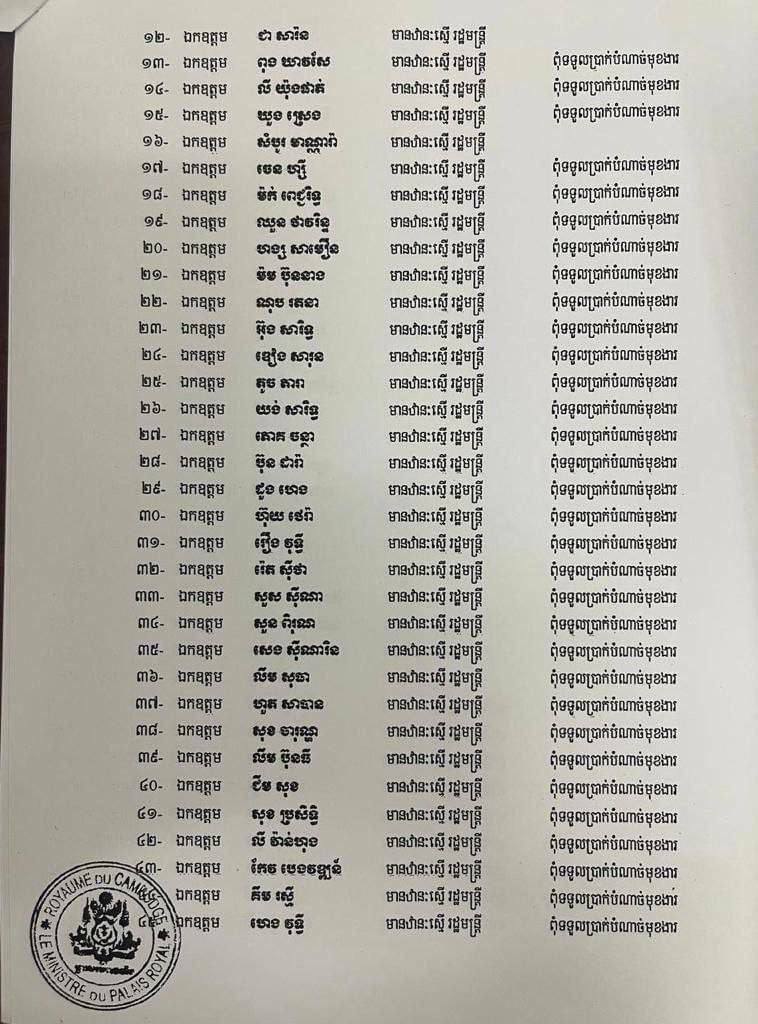 ១២- ឯកឧត្តម ជា សារ៉ន មានឋានៈស្មើ រដ្ឋមន្ត្រី
១៣- ឯកឧត្តម ពុង ឃាវសែ មានឋានៈស្មើ រដ្ឋមន្ត្រី ពុំទទួលប្រាក់បំណាច់មុខងារ
១៤- ឯកឧត្តម លី យ៉ុងផាត់ មានឋានៈស្មើ រដ្ឋមន្ត្រី ពុំទទួលប្រាក់បំណាច់មុខងារ
១៥- ឯកឧត្តម ឃួង ស្រេង មានឋានៈស្មើ រដ្ឋមន្ត្រី ពុំទទួលប្រាក់បំណាច់មុខងារ
១៦- ឯកឧត្តម សំបូរ មាណ្ណារ៉ា មានឋានៈស្មើ រដ្ឋមន្ត្រី
១៧- ឯកឧត្តម ចេន ហ្សី មានឋានៈស្មើ រដ្ឋមន្ត្រី ពុំទទួលប្រាក់បំណាច់មុខងារ
១៨- ឯកឧត្តម ម៉ក់ ពេជ្ររិទ្ធ មានឋានៈស្មើ រដ្ឋមន្ត្រី ពុំទទួលប្រាក់បំណាច់មុខងារ
១៩- ឯកឧត្តម ឈួន ថាវរិន្ទ មានឋានៈស្មើ រដ្ឋមន្ត្រី ពុំទទួលប្រាក់បំណាច់មុខងារ
២០- ឯកឧត្តម ហង្ស សាមឿន មានឋានៈស្មើ រដ្ឋមន្ត្រី ពុំទទួលប្រាក់បំណាច់មុខងារ
២១- ឯកឧត្តម ម៉ម ប៊ុននាង មានឋានៈស្មើ រដ្ឋមន្ត្រី ពុំទទួលប្រាក់បំណាច់មុខងារ
២២- ឯកឧត្តម ណុប រតនា មានឋានៈស្មើ រដ្ឋមន្ត្រី ពុំទទួលប្រាក់បំណាច់មុខងារ
២៣- ឯកឧត្តម អ៊ុង សារិទ្ធ មានឋានៈស្មើ រដ្ឋមន្ត្រី ពុំទទួលប្រាក់បំណាច់មុខងារ
២៤- ឯកឧត្តម ឌៀង សារុន មានឋានៈស្មើ រដ្ឋមន្ត្រី ពុំទទួលប្រាក់បំណាច់មុខងារ
២៥- ឯកឧត្តម តូច តារា មានឋានៈស្មើ រដ្ឋមន្ត្រី ពុំទទួលប្រាក់បំណាច់មុខងារ
២៦- ឯកឧត្តម យង់ សារិទ្ធ មានឋានៈស្មើ រដ្ឋមន្ត្រី ពុំទទួលប្រាក់បំណាច់មុខងារ
២៧- ឯកឧត្តម តោគ ចន្ថា មានឋានៈស្មើ រដ្ឋមន្ត្រី ពុំទទួលប្រាក់បំណាច់មុខងារ
២៨- ឯកឧត្តម ប៊ុន ដារ៉ា មានឋានៈស្មើ រដ្ឋមន្ត្រី ពុំទទួលប្រាក់បំណាច់មុខងារ
២៩- ឯកឧត្តម ដួង ហេង មានឋានៈស្មើ រដ្ឋមន្ត្រី ពុំទទួលប្រាក់បំណាច់មុខងារ
៣០- ឯកឧត្តម ហ៊ុយ ថេរ៉ា មានឋានៈស្មើ រដ្ឋមន្ត្រី ពុំទទួលប្រាក់បំណាច់មុខងារ
៣១- ឯកឧត្តម រឿង វុទ្ធី មានឋានៈស្មើ រដ្ឋមន្ត្រី ពុំទទួលប្រាក់បំណាច់មុខងារ
៣២- ឯកឧត្តម រ៉េត ស៊ីថា មានឋានៈស្មើ រដ្ឋមន្ត្រី ពុំទទួលប្រាក់បំណាច់មុខងារ
៣៣- ឯកឧត្តម សួស ស៊ីណា មានឋានៈស្មើ រដ្ឋមន្ត្រី ពុំទទួលប្រាក់បំណាច់មុខងារ
៣៤- ឯកឧត្តម សួន ពិរុណ មានឋានៈស្មើ រដ្ឋមន្ត្រី ពុំទទួលប្រាក់បំណាច់មុខងារ
៣៥- ឯកឧត្តម សេង ស៊ីណារិន មានឋានៈស្មើ រដ្ឋមន្ត្រី ពុំទទួលប្រាក់បំណាច់មុខងារ
៣៦- ឯកឧត្តម លឹម សុធា មានឋានៈស្មើ រដ្ឋមន្ត្រី ពុំទទួលប្រាក់បំណាច់មុខងារ
៣៧- ឯកឧត្តម ហួត សាធាន មានឋានៈស្មើ រដ្ឋមន្ត្រី ពុំទទួលប្រាក់បំណាច់មុខងារ
៣៨- ឯកឧត្តម សុខ ចារុណ្ហ មានឋានៈស្មើ រដ្ឋមន្ត្រី ពុំទទួលប្រាក់បំណាច់មុខងារ
៣៩- ឯកឧត្តម លឹម ប៊ុនធី មានឋានៈស្មើ រដ្ឋមន្ត្រី ពុំទទួលប្រាក់បំណាច់មុខងារ
៤០- ឯកឧត្តម ជឹម សុខ មានឋានៈស្មើ រដ្ឋមន្ត្រី ពុំទទួលប្រាក់បំណាច់មុខងារ
៤១- ឯកឧត្តម សុខ ប្រសិទ្ធិ មានឋានៈស្មើ រដ្ឋមន្ត្រី ពុំទទួលប្រាក់បំណាច់មុខងារ
៤២- ឯកឧត្តម លី វ៉ាន់ហុង មានឋានៈស្មើ រដ្ឋមន្ត្រី ពុំទទួលប្រាក់បំណាច់មុខងារ
៤៣- ឯកឧត្តម កែវ បេងវឌ្ឍន៍ មានឋានៈស្មើ រដ្ឋមន្ត្រី ពុំទទួលប្រាក់បំណាច់មុខងារ
ឯកឧត្តម គឹម រស្មី មានឋានៈស្មើ រដ្ឋមន្ត្រី ពុំទទួលប្រាក់បំណាច់មុខងារ
ឯកឧត្តម ហេង វុទ្ធី មានឋានៈស្មើ រដ្ឋមន្ត្រី ពុំទទួលប្រាក់បំណាច់មុខងារ
ROYAUME DU CAMBODGE
LE MINISTRE DU PALAIS ROYAL